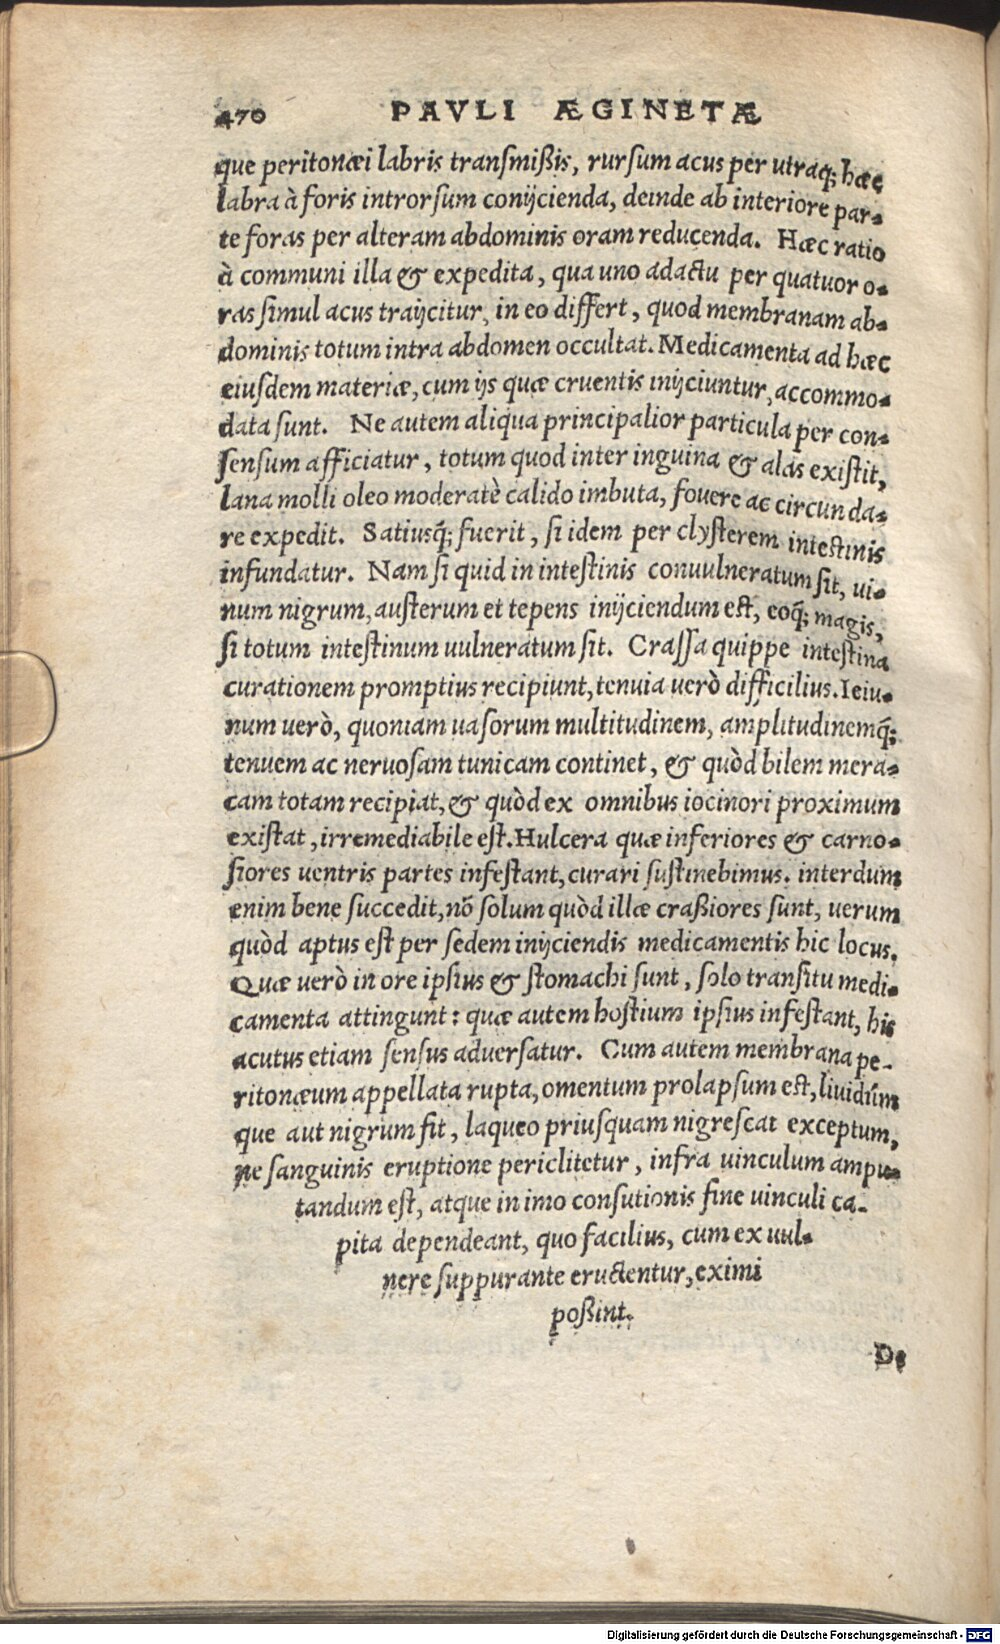 470 PAVLI ÆGINETÆ
que peritonæi labris transmißis, rursum acus per utraq; hæc
labra à foris introrsum conijcienda, deinde ab interiore par-
te foras per alteram abdominis oram reducenda. Hæc ratio
à communi illa & expedita, qua uno adactu per quatuor o-
ras simul acus traijcitur, in eo differt, quod membranam ab-
dominis totum intra abdomen occultat. Medicamenta ad hæc
eiusdem materiæ, cum ijs quæ cruentis inijciuntur, accommo-
data sunt. Ne autem aliqua principalior particula per con-
sensum afficiatur, totum quod inter inguina & alas existit,
lana molli oleo moderatè calido imbuta, fouere ac circunda-
re expedit. Satiusq; fuerit, si idem per clysterem intestinis
infundatur. Nam si quid in intestinis conuulneratum sit, ui-
num nigrum, austerum et tepens inijciendum est, eoq; magis,
si totum intestinum uulneratum sit. Crassa quippe intestina
curationem promptius recipiunt, tenuia uerò difficilius. Ieiu-
num uerò, quoniam uasorum multitudinem, amplitudinemq;
tenuem ac neruosam tunicam continet, & quòd bilem mera-
cam totam recipiat, & quòd ex omnibus iocinori proximum
existat, irremediabile est. Hulcera quæ inferiores & carno-
siores uentris partes infestant, curari sustinebimus. interdum
enim bene succedit, nõ solum quòd illæ craßiores sunt, uerum
quòd aptus est per sedem inijciendis medicamentis hic locus.
Quæ uerò in ore ipsius & stomachi sunt, solo transitu medi-
camenta attingunt: quæ autem hostium ipsius infestant, his
acutus etiam sensus aduersatur. Cum autem membrana pe-
ritonæum appellata rupta, omentum prolapsum est, liuidúm
que aut nigrum fit, laqueo priusquam nigrescat exceptum,
ne sanguinis eruptione periclitetur, infra uinculum ampu-
tandum est, atque in imo consutionis fine uinculi ca-
pita dependeant, quo facilius, cum ex uul-
nere suppurante eructentur, eximi
poßint.
De
Digitalisierung gefördert durch die Deutsche Forschungsgemeinschaft - DFG